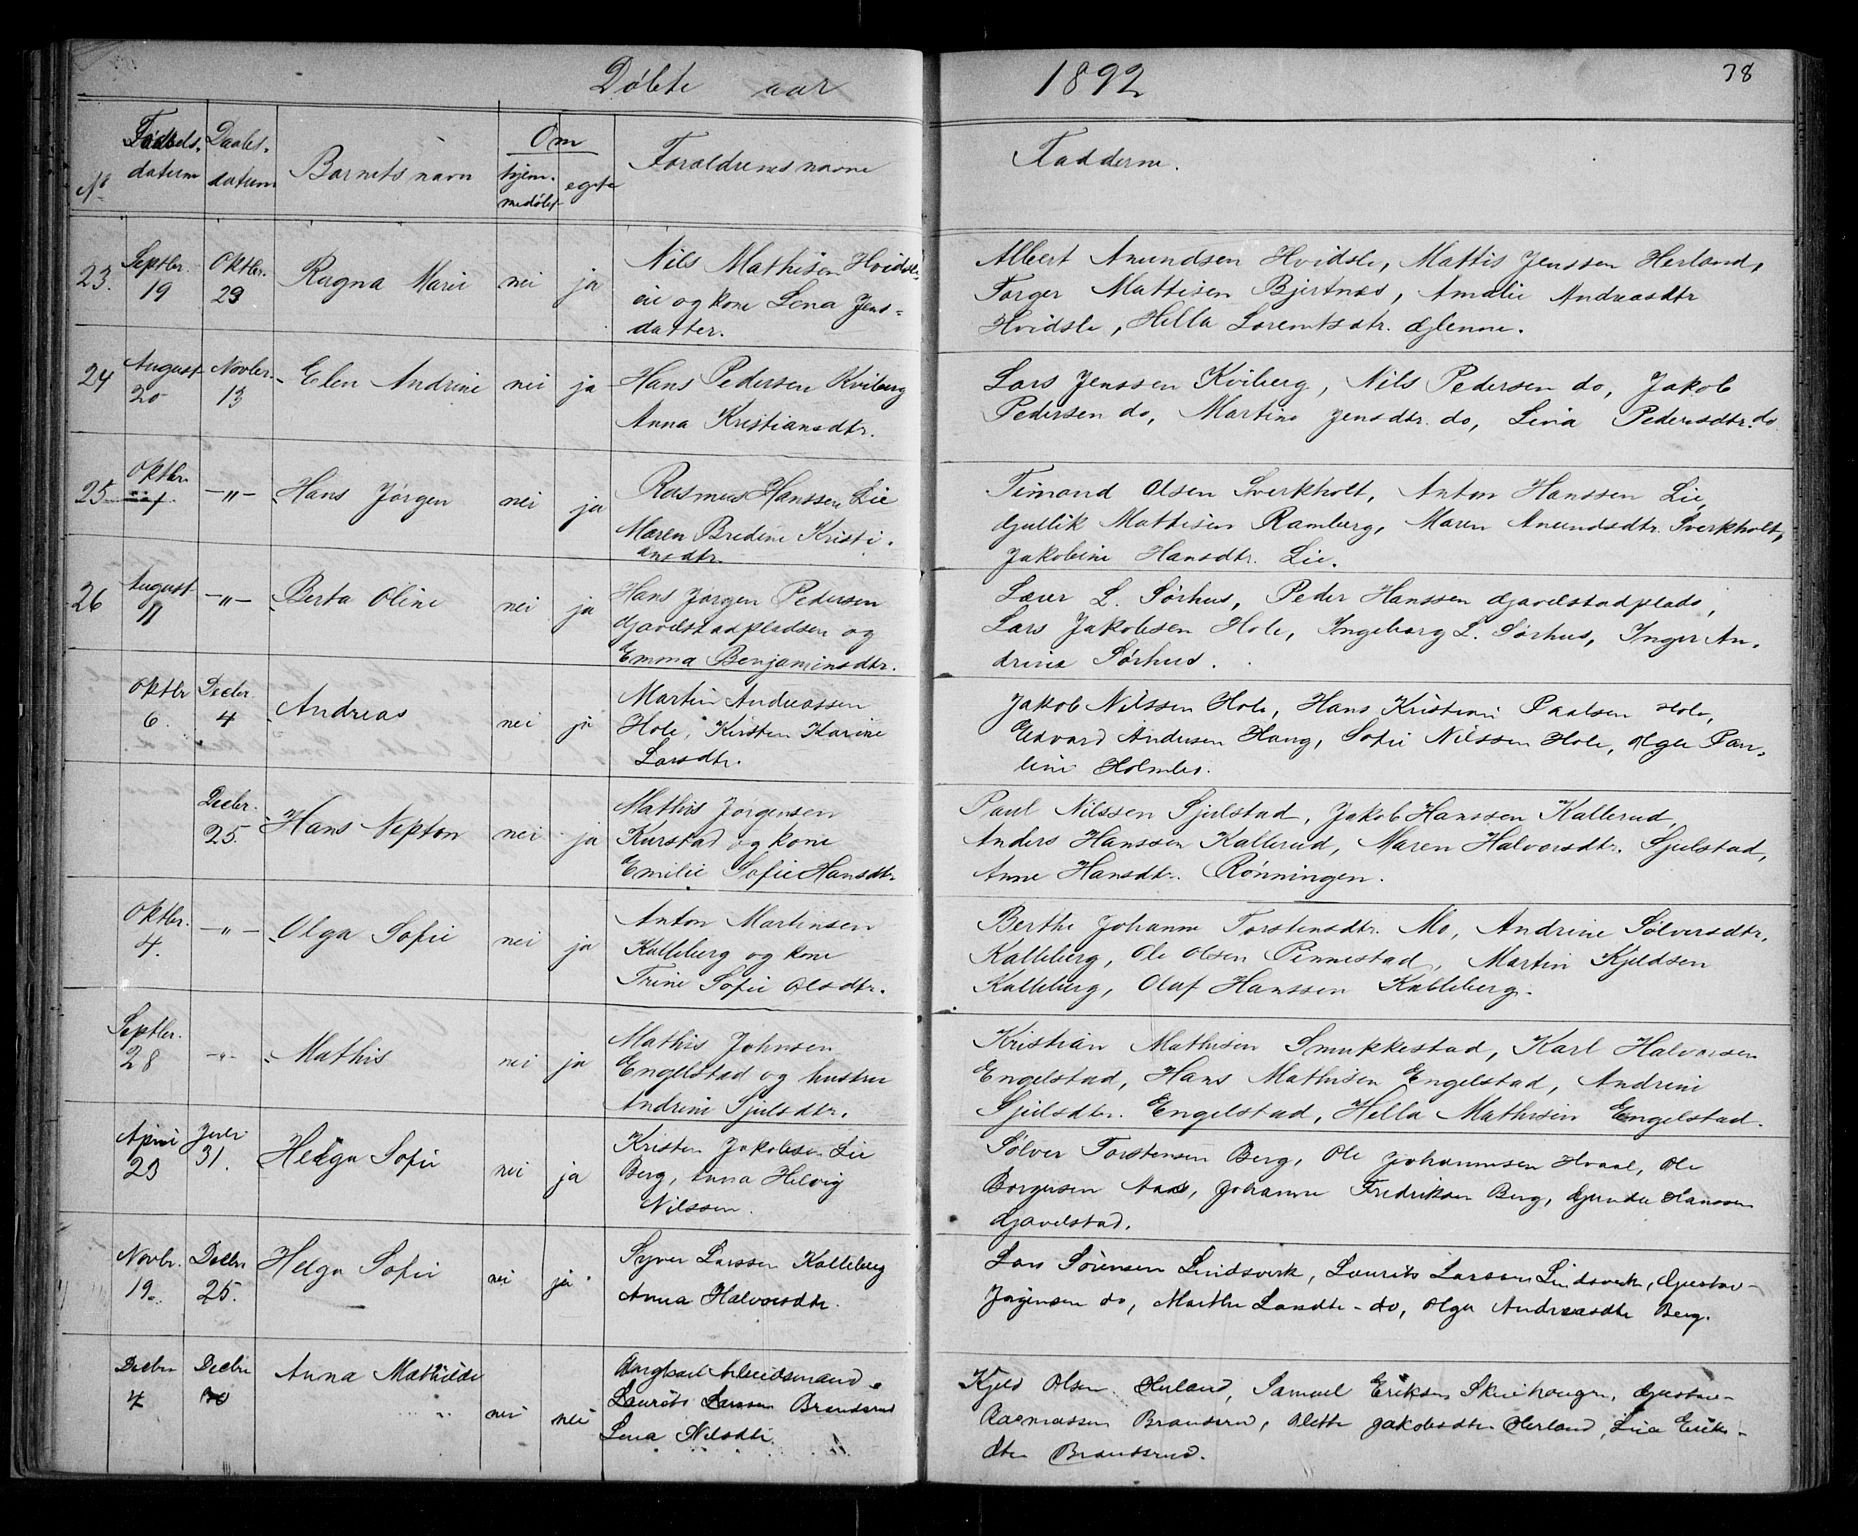 Døbte aar 1892
38
No
Fødselsdatum
Daabsdatum
Barnets navn
Om
hjemmedøbt
egte
Forældrenes navne
Fadderne.
23. Septbr. 19 Oktbr. 23 Ragna Marie nei ja
Nils Mathisen Hvidsle-
eie og kone Lena Jens-
datter.
Albert Amundsen Hvidsle, Mattis Jenssen Herland,
Torger Mattisen Bjertnæs, Amalie Andreasdtr
Hvidsle, Hella Lorentsdtr. Glenne.
24 August 20 Novbr. 13 Elen Andrine nei ja
Hans Pedersen Kviberg
Anna Kristiansdtr.
Lars Jenssen Kviberg, Nils Pedersen do, Jakob
Pedersen do, Martine Jensdtr. do, Lina Pedersdtr. do
25 Oktbr. -„- Hans Jørgen nei ja
Rasmus Hanssen Lie
Maren Bredine Kristi-
ansdtr.
Timand Olsen Sverkholt, Anton Hanssen Lie,
Gullik Mattisen Ramberg, Maren Amundsdtr. Sverkholt,
Jakobine Hansdtr. Lie.
26 August 11 -„- Berta Oline nei ja
Hans Jørgen Pedersen
Gavelstadpladsen og
Emma Benjaminsdtr.
L. Sørhus, Peder Hanssen Gavelstadplads,
Lars Jakobsen Hole, Ingeborg L. Sørhus, Inger An-
drine Sørhus.
Oktbr 6. Decbr. 4 Andreas nei ja
Martin Andreassen
Hole, Kirsten Karine
Larsdtr.
Jakob Nilssen Hole, Hans Kristian Paalsen Hole,
Edvard Andersen Haug, Sofie Nilssen Hole, Olga Pau-
line Holmbo.
Decbr. 25. Hans Nepton nei ja
Mathis Jørgensen
Kurstad og kone
Emilie Sofie Hansdtr
Paul Nilssen Sjulstad, Jakob Hanssen Kallerud,
Anders Hanssen Kallerud, Maren Halvorsdtr. Sjulstad,
Anne Hansdtr. Rønningen.
Oktbr. 4. -„- Olga Sofie nei ja
Anton Martinsen
Kalleberg og kone
Trine Sofie Olsdtr.
Berthe Johanne Torstensdtr. Mo, Andrine Sølversdtr.
Kalleberg, Ole Olsen Pinnestad, Martin Kjeldsen
Kalleberg, Olaf Hanssen Kalleberg.
Septbr. 28 -„- Mathis nei ja
Mathis Johnsen
Engelstad og hustru
Andrine Sjulsdtr.
Kristian Mathisen Smukkestad, Karl Halvorsen
Engelstad, Hans Mathisen Engelstad, Andrine
Sjulsdtr. Engelstad, Hella Mathisen Engelstad.
April 23 Juli 31. Helga Sofie nei ja
Kristen Jakobsen Lie
Berg, Anna Helvig
Nilssen.
Sølver Torstensen Berg, Ole Johannesen Hvaal, Ole
Borgersen Aas, Johanne Fredriksen Berg, Gunda Hanssen
Gavelstad.
Novbr. 19. Decbr 25. Helga Sofie nei ja
Syver Larssen Kalleberg
Anna Halvorsdtr.
Lars Sørensen Lindsverk, Laurits Larssen Lindsverk, Gustav
Jørgensen do, Marthe Larsdtr do, Olga Andreasdtr Berg.
Decbr 4 Decbr Anna Mathilde nei nei
Ungkarl Arbeidsmand
Laurits Larssen Brandsrud
Lena Nilsdtr.
Kjeld Olsen Herland, Samuel Eriksen Skuehaugen, Gustav
Rasmussen Brandsrud, Alette Jakobsdtr Herland, Lia Eriks-
dtr Brandsrud.